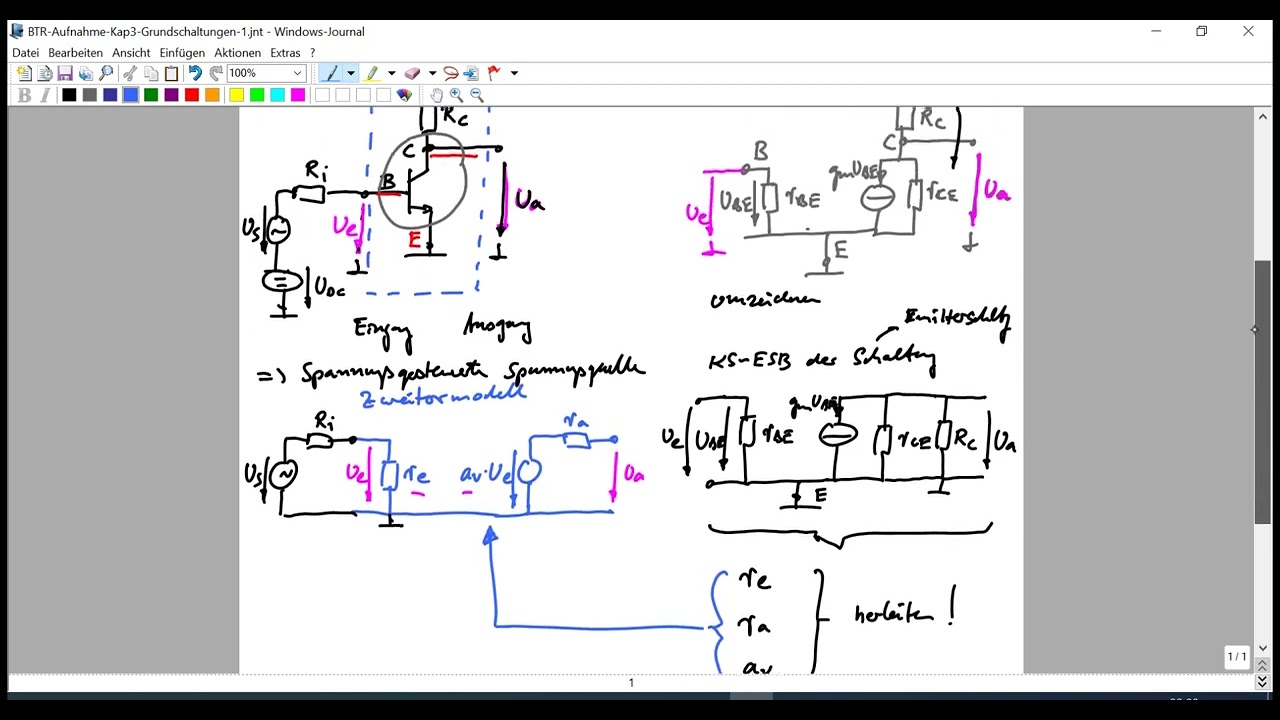 BTR-Aufnahme-Kap3-Grundschaltungen-1.jnt - Windows-Journal
Datei Bearbeiten Ansicht Einfügen Aktionen Extras ?
100%
B I
RC
C
Ri
B
Us
Ue
Ua
E
UDC
Eingang Ausgang
=> Spannungsgesteuerte Spannungsquelle
Zweitormodell
Ri
ra
Us
Ue
re
av·Ue
Ua
RC
C
B
gmUBE
Ue
UBE
rBE
rCE
Ua
E
umzeichnen
Emitterschltg
KS-ESB der Schaltung
gmUBE
Ue
UBE
rBE
rCE
RC
Ua
E
re
ra
av
herleiten!
1 / 1
1